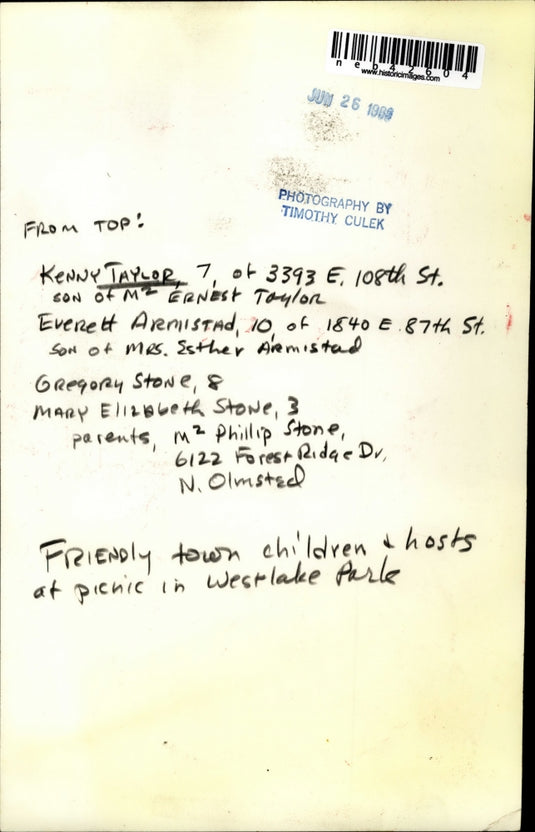 neb42604
www.historicimages.com
JUN 26
PHOTOGRAPHY BY
TIMOTHY CULEK
FROM TOP:
KENNY TAYLOR, 7, of 3393 E. 108th St.
son of Mr ERNEST Taylor
Everett ARMISTAD, 10, of 1840 E 87th St.
son of MRS. Esther Armistad
Gregory Stone, 8
MARY Elizabeth Stone, 3
parents, Mr Phillip Stone,
6122 Forest Ridge Dr,
N. Olmsted
FRIENDly town children & hosts
at picnic in Westlake Park